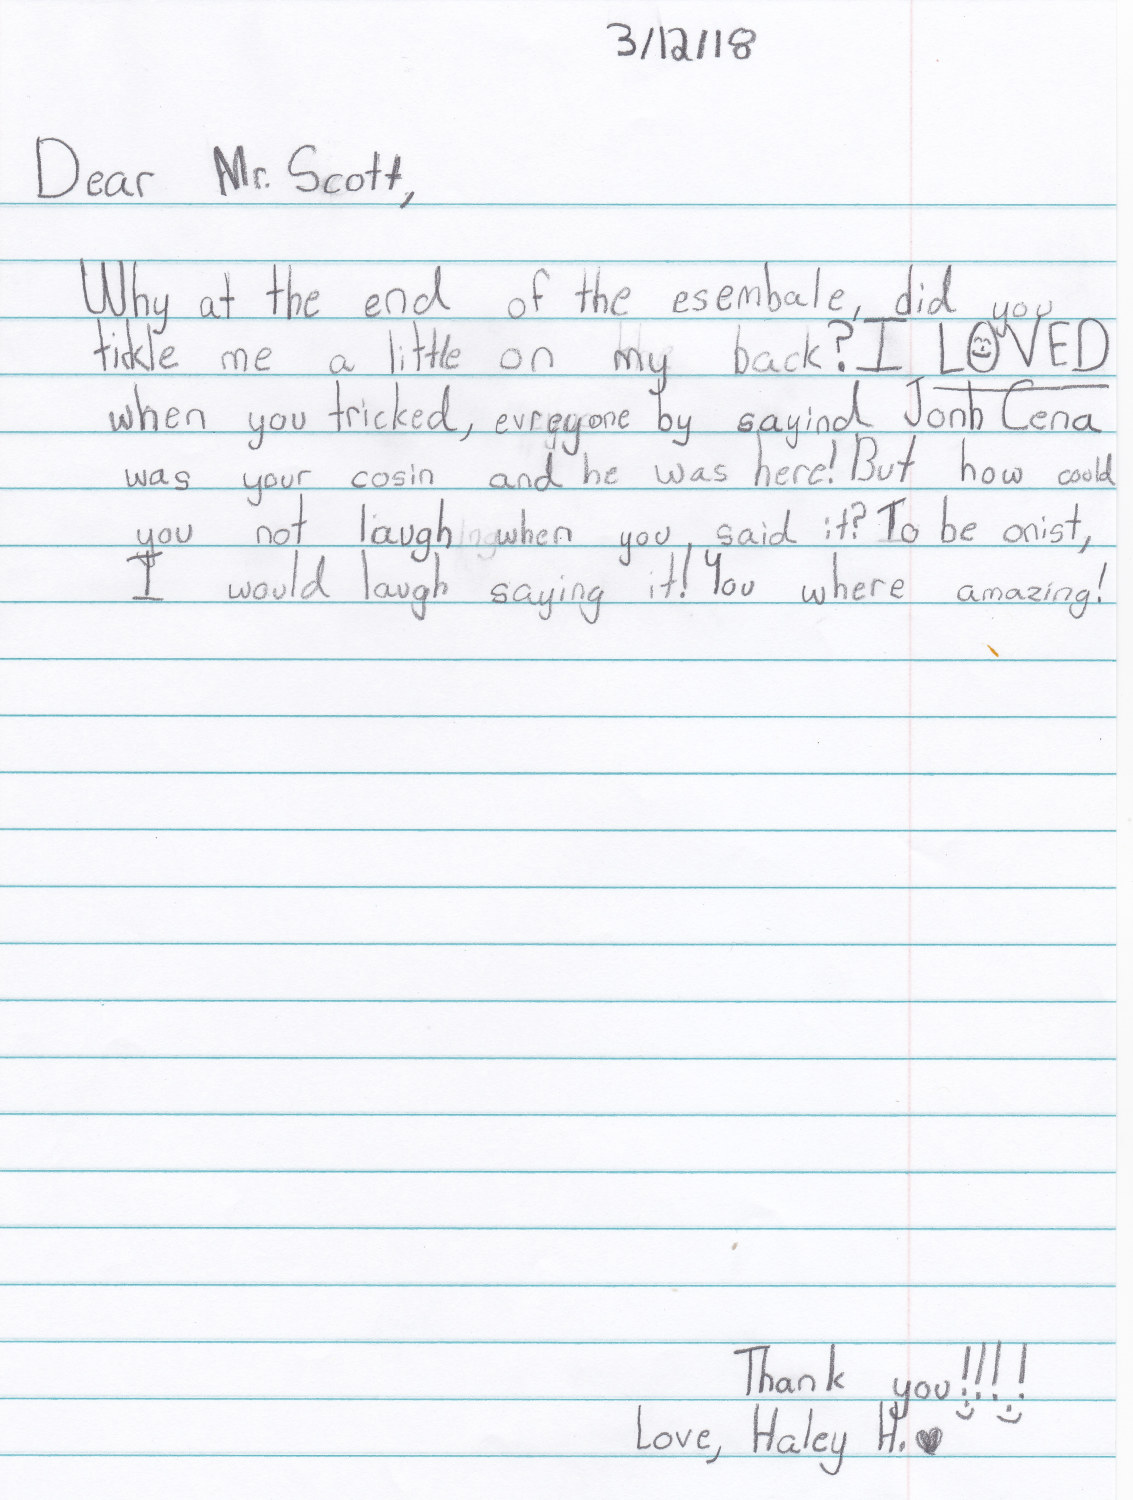 3/12/18
Dear Mr. Scott,
Why at the end of the esembale, did you
tickle me a little on my back? I LOVED
when you tricked, evreyone by sayind Jonh Cena
was your cosin and he was here! But how could
you not laugh when you said it? To be onist,
I would laugh saying it! You where amazing!
Thank you!!!!
Love, Haley H.